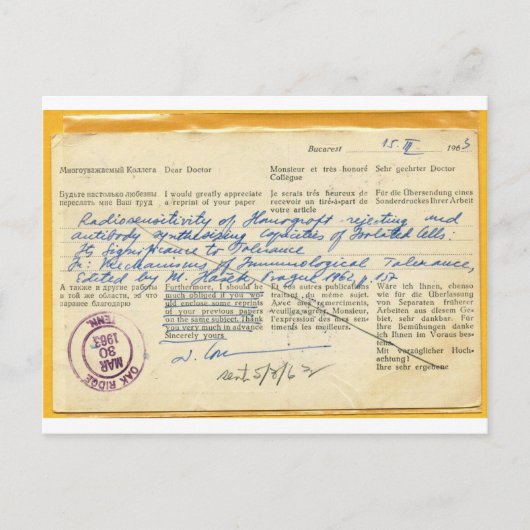 Bucarest 15. III 1963
Многоуважаемый Коллега
Будьте настолько любезны
переслать мне Ваш труд
Dear Doctor
I would greatly appreciate
a reprint of your paper
Monsieur et très honoré
Collègue
Je serais très heureux de
recevoir un tiré-à-part de
votre article
Sehr geehrter Doctor
Für die Übersendung eines
Sonderdruckes Ihrer Arbeit
Radiosensitivity of Homograft rejecting and
antibody synthesising capacities of Isolated Cells:
Its significance to Tolerance
In: Mechanisms of Immunological Tolerance,
Edited by M. Hašek, Prague 1962, p. 157
А также и другие работы
в той же области, за что
заранее благодарю
Furthermore, I should be
much obliged if you would
enclose some reprints
of your previous papers
on the same subject. Thank
you very much in advance
Sincerely yours
Et vos autres publications
traitant du même sujet.
Avec mes remerciments,
veuillez agréer, Monsieur,
l'expression des mes sen-
timents les meilleurs.
Wäre ich Ihnen, ebenso
wie für die Überlassung
von Separaten früherer
Arbeiten aus diesem Ge-
biet, sehr dankbar. Für
Ihre Bemühungen danke
ich Ihnen im Voraus bes-
tens.
Mit vorzüglicher Hoch-
achtung!
Ihre sehr ergebene
OAK RIDGE
MAR
30
1963
TENN.
sent